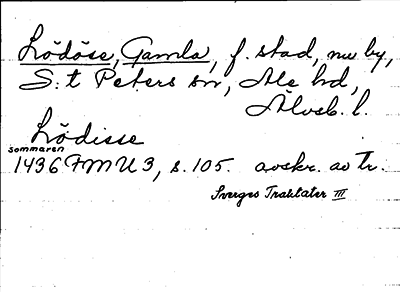 Lödöse, Gamla, f. stad, nu by,
S:t Peters sn, Ale hd,
Älvsb. l.
Lödisse
sommaren
1436 FMU 3, s. 105. avskr. av tr.
Sverges Traktater III